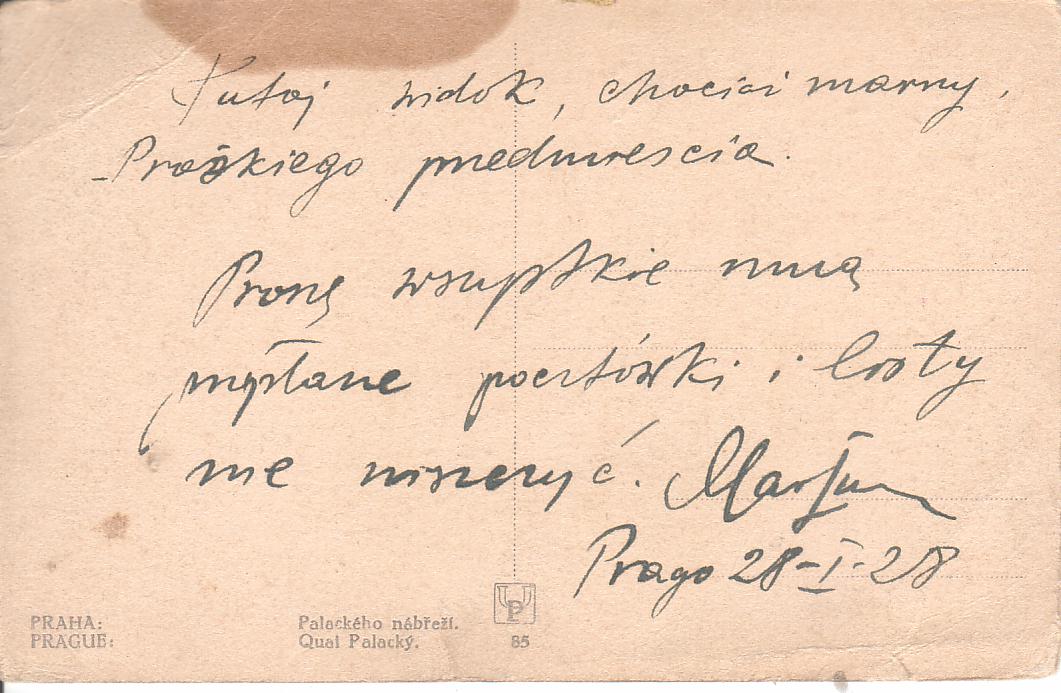 Tutaj widok, chociaż marny,
Praskiego przedmieścia.
Proszę wszystkie mną
pisane pocztówki i listy
nie niszczyć. Martin
Praga 28-I-28
PRAHA: Palackého nábřeží.
PRAGUE: Quai Palacký.
UP
85